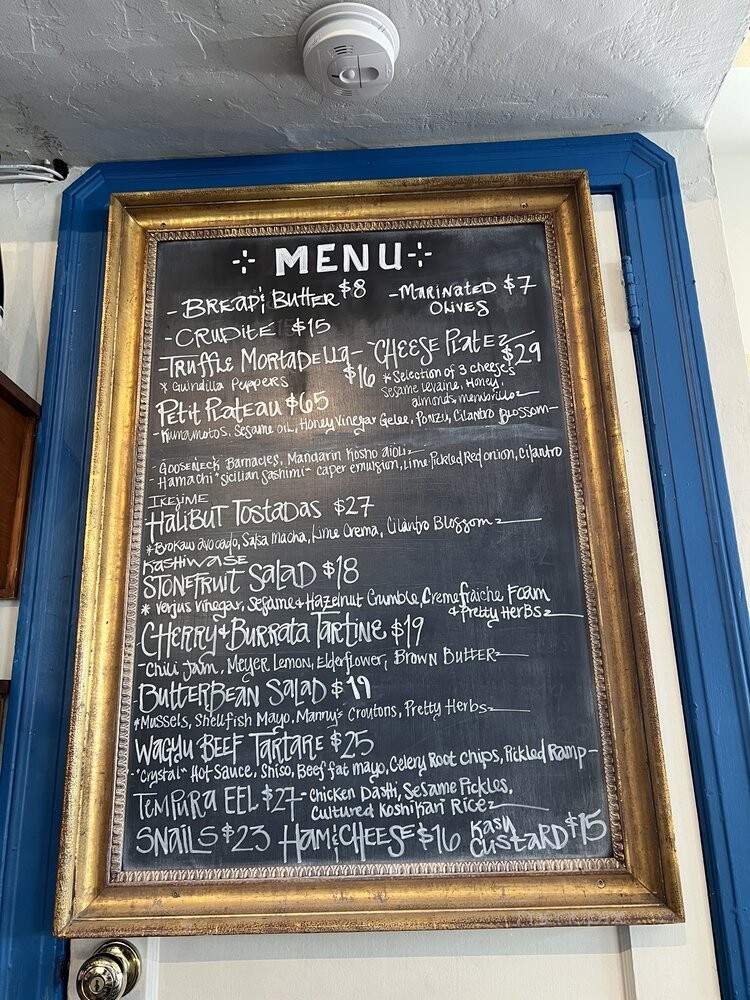 MENU
- BREAD & BUTTER $8 - MARINATED OLIVES $7
- CRUDITE $15
- TRUFFLE MORTADELLA - $16
* Guindilla Peppers
CHEESE PLATE $29
* Selection of 3 cheeses
Sesame Levaine, Honey,
almonds, membrillo
PETIT PLATEAU $65
- Kumamotos, Sesame oil, Honey Vinegar Gelee, Ponzu, Cilantro Blossom -
- GOOSENECK Barnacles, Mandarin Kosho aioli
- Hamachi "sicilian sashimi" caper emulsion, Lime Pickled Red onion, cilantro
IKEJIME
HALIBUT TOSTADAS $27
* Brokaw avocado, Salsa Macha, Lime Crema, Cilantro Blossom
KASHIWASE
STONEFRUIT SALAD $18
* Verjus vinegar, Sesame & Hazelnut Crumble, Creme fraiche Foam
& Pretty Herbs
CHERRY & BURRATA TARTINE $19
- Chili Jam, Meyer Lemon, Elderflower, Brown Butter
BUTTERBEAN SALAD $19
* Mussels, Shellfish Mayo, Manny's Croutons, Pretty Herbs
WAGYU BEEF TARTARE $25
- "Crystal" Hot Sauce, Shiso, Beef fat mayo, Celery Root chips, Pickled Ramp -
TEMPURA EEL $27 - Chicken Dashi, Sesame Pickles,
Cultured Koshikari Rice
SNAILS $23 HAM & CHEESE $16 KASU CUSTARD $15